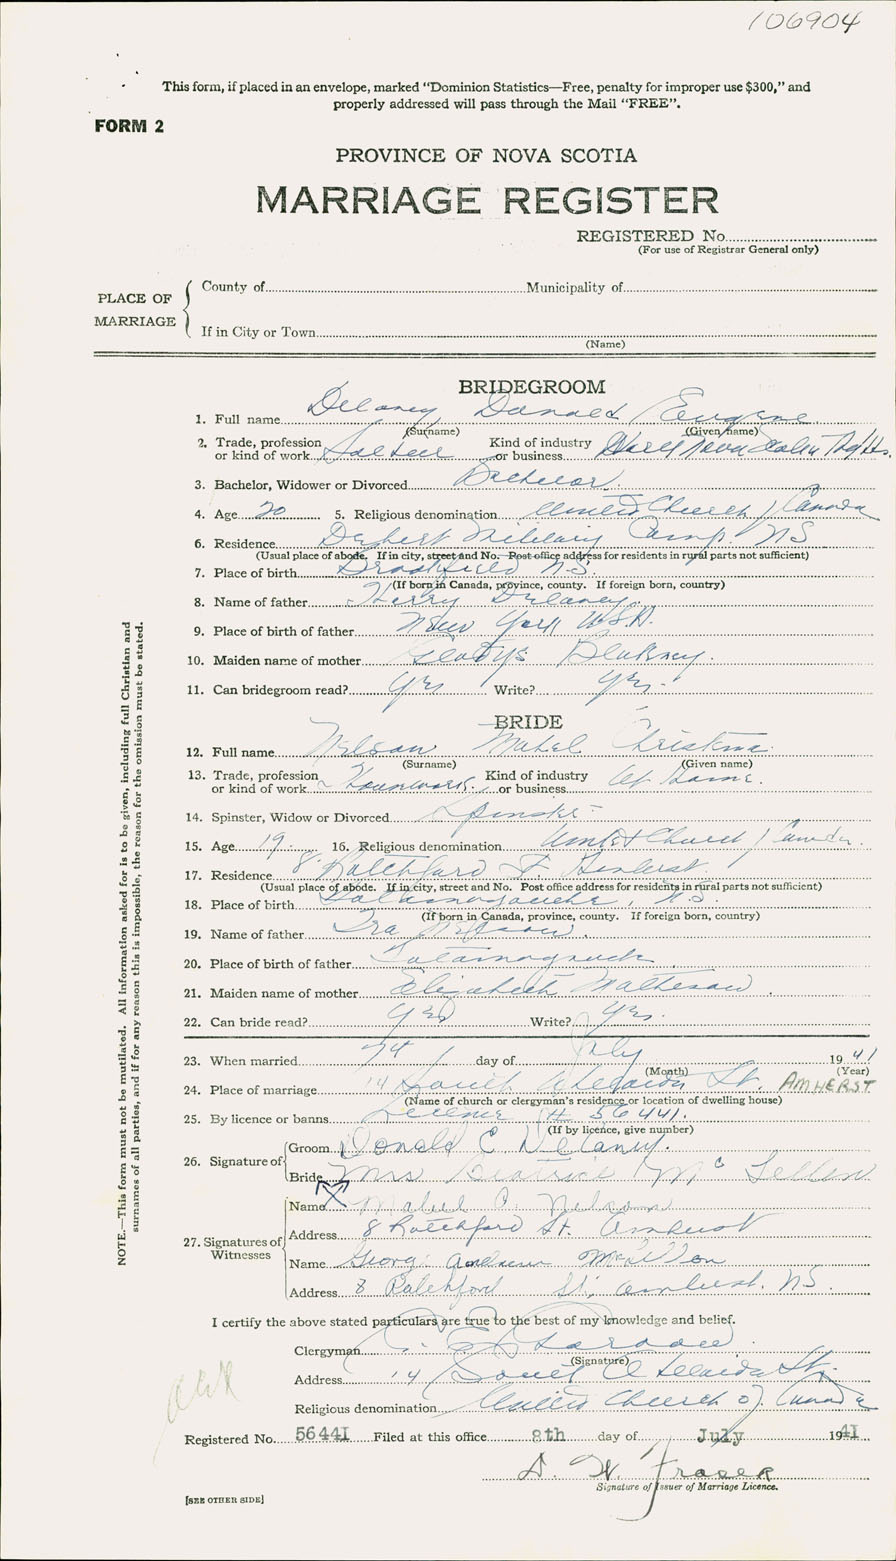 106904
This form, if placed in an envelope, marked “Dominion Statistics—Free, penalty for improper use $300,” and
properly addressed will pass through the Mail “FREE”.
FORM 2
PROVINCE OF NOVA SCOTIA
MARRIAGE REGISTER
REGISTERED No.
(For use of Registrar General only)
PLACE OF MARRIAGE
County of Municipality of
If in City or Town
(Name)
BRIDEGROOM
1. Full name Delaney Donald Eugene
(Surname) (Given name)
2. Trade, profession or kind of work Soldier Kind of industry or business North Nova Scotia
3. Bachelor, Widower or Divorced Bachelor.
4. Age 20 5. Religious denomination United Church / Canada
6. Residence Debert Military Camp. NS
(Usual place of abode. If in city, street and No. Post office address for residents in rural parts not sufficient)
7. Place of birth Brookfield NS.
(If born in Canada, province, county. If foreign born, country)
8. Name of father Harry Delaney
9. Place of birth of father New York U.S.A.
10. Maiden name of mother Gladys Blakney.
11. Can bridegroom read? Yes Write? Yes.
BRIDE
12. Full name Nelson Mabel Christina
(Surname) (Given name)
13. Trade, profession or kind of work Housework. Kind of industry or business At Home.
14. Spinster, Widow or Divorced Spinster
15. Age 19. 16. Religious denomination United Church / Canada.
17. Residence 8 Ratchford St Amherst.
(Usual place of abode. If in city, street and No. Post office address for residents in rural parts not sufficient)
18. Place of birth Tatamagouche, N.S.
(If born in Canada, province, county. If foreign born, country)
19. Name of father Ira Nelson.
20. Place of birth of father Tatamagouche
21. Maiden name of mother Elizabeth Matheson.
22. Can bride read? Yes Write? Yes.
23. When married day of July 1941
(Month) (Year)
24. Place of marriage 14 South Adelaide St. AMHERST
(Name of church or clergyman's residence or location of dwelling house)
25. By licence or banns License # 56441.
(If by licence, give number)
26. Signature of Groom Donald E Delaney.
Bride Mrs Beatrice McLellan
27. Signatures of Witnesses
Name Mabel C. Nelson
Address 8 Ratchford St. Amherst
Name George Andrew
Address 8 Ratchford St, Amherst. NS.
I certify the above stated particulars are true to the best of my knowledge and belief.
Clergyman
(Signature)
Address 14 South Adelaide St.
Religious denomination United Church of Canada
Registered No. 56441 Filed at this office 8th day of July 1941
D. W. Fraser
Signature of Issuer of Marriage Licence.
[SEE OTHER SIDE]
NOTE.—This form must not be mutilated. All information asked for is to be given, including full Christian and
surnames of all parties, and if for any reason this is impossible, the reason for the omission must be stated.